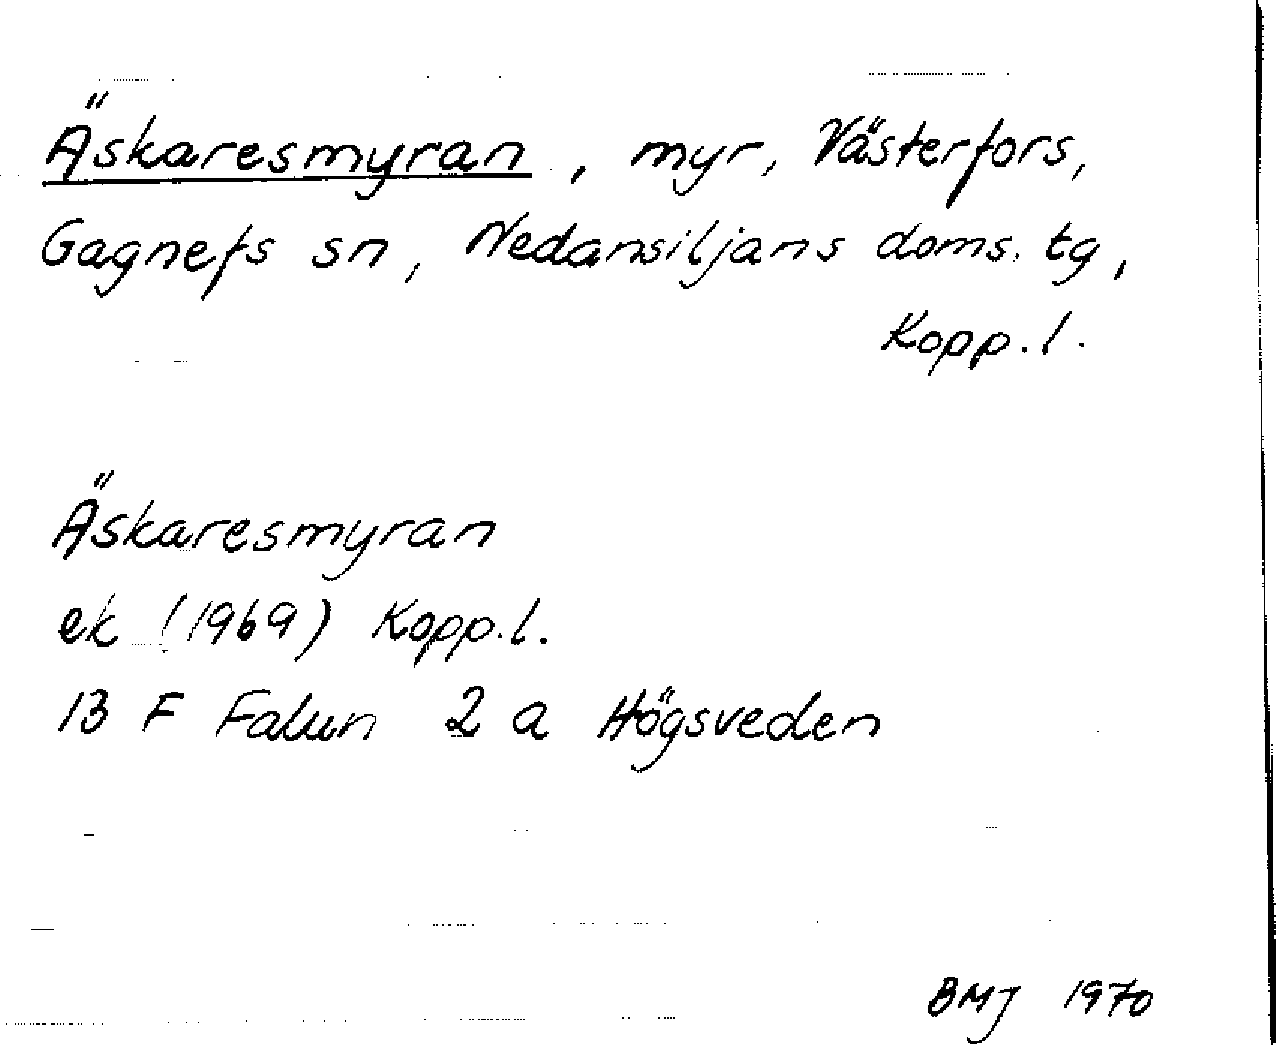 Äskaresmyran, myr, Västerfors,
Gagnefs sn, Nedansiljans doms. tg,
Kopp. l.
Äskaresmyran
ek (1969) Kopp. l.
13 F Falun 2 a Högsveden
BMJ 1970